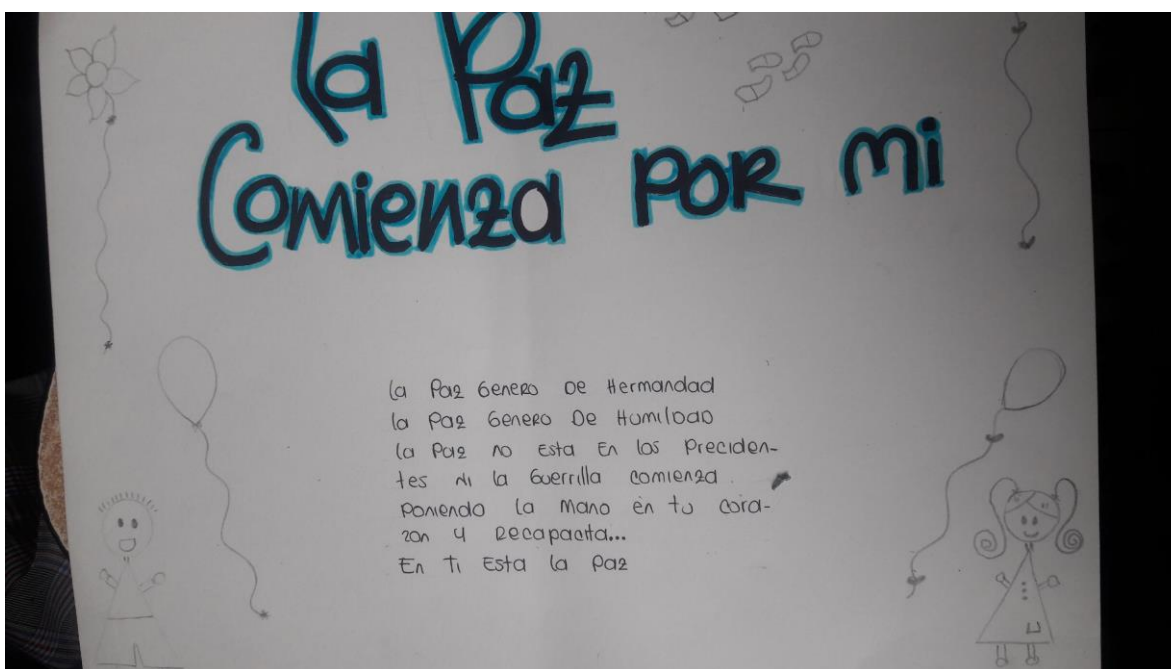 La Paz
Comienza POR mi
La Paz Genero De Hermandad
la Paz Genero De Humildad
la Paz no Esta En los Preciden-
tes Ni la Guerrilla comienza
poniendo la mano en tu cora-
zon y Recapacita...
En Ti Esta la Paz